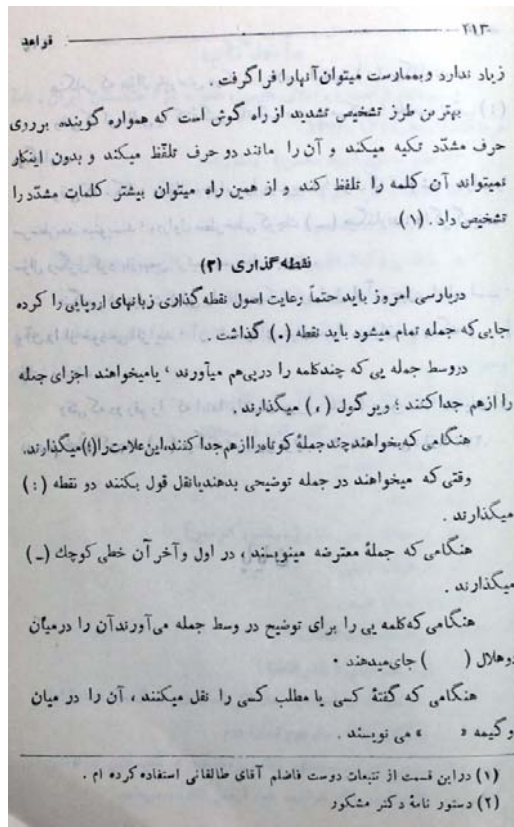 -۲۱۳- قواعد
زیاد ندارد وبممارست میتوان آنهارا فراگرفت .
بهترین طرز تشخیص تشدید از راه گوش است که همواره گوینده برروی
حرف مشدّد تکیه میکند و آن را مانند دو حرف تلفّظ میکند و بدون اینکار
نمیتواند آن کلمه را تلفظ کند و از همین راه میتوان بیشتر کلمات مشدّد را
تشخیص داد . (۱)
نقطه گذاری (۲)
درپارسی امروز باید حتماً رعایت اصول نقطه گذاری زبانهای اروپایی را کرده
جایی که جمله تمام میشود باید نقطه (.) گذاشت .
دروسط جمله یی که چندکلمه را درپی هم میآورند ، یامیخواهند اجزای جمله
را ازهم جدا کنند ؛ ویر گول ( ، ) میگذارند .
هنگامی که بخواهند چند جملهٔ کوتاه را ازهم جدا کنند، این علامت را (؛) میگذارند.
وقتی که میخواهند در جمله توضیحی بدهند یانقل قول بکنند دو نقطه ( : )
میگذارند .
هنگامی که جملهٔ معترضه مینویسند ، در اول و آخر آن خطی کوچک (ـ)
میگذارند .
هنگامی که کلمه یی را برای توضیح در وسط جمله می آورند آن را درمیان
دوهلال ( ) جای میدهند .
هنگامی که گفتهٔ کسی یا مطلب کسی را نقل میکنند ، آن را در میان
و گیمه « » می نویسند .
(۱) دراین قسمت از تتبعات دوست فاضلم آقای طالقانی استفاده کرده ام .
(۲) دستور نامهٔ دکتر مشکور